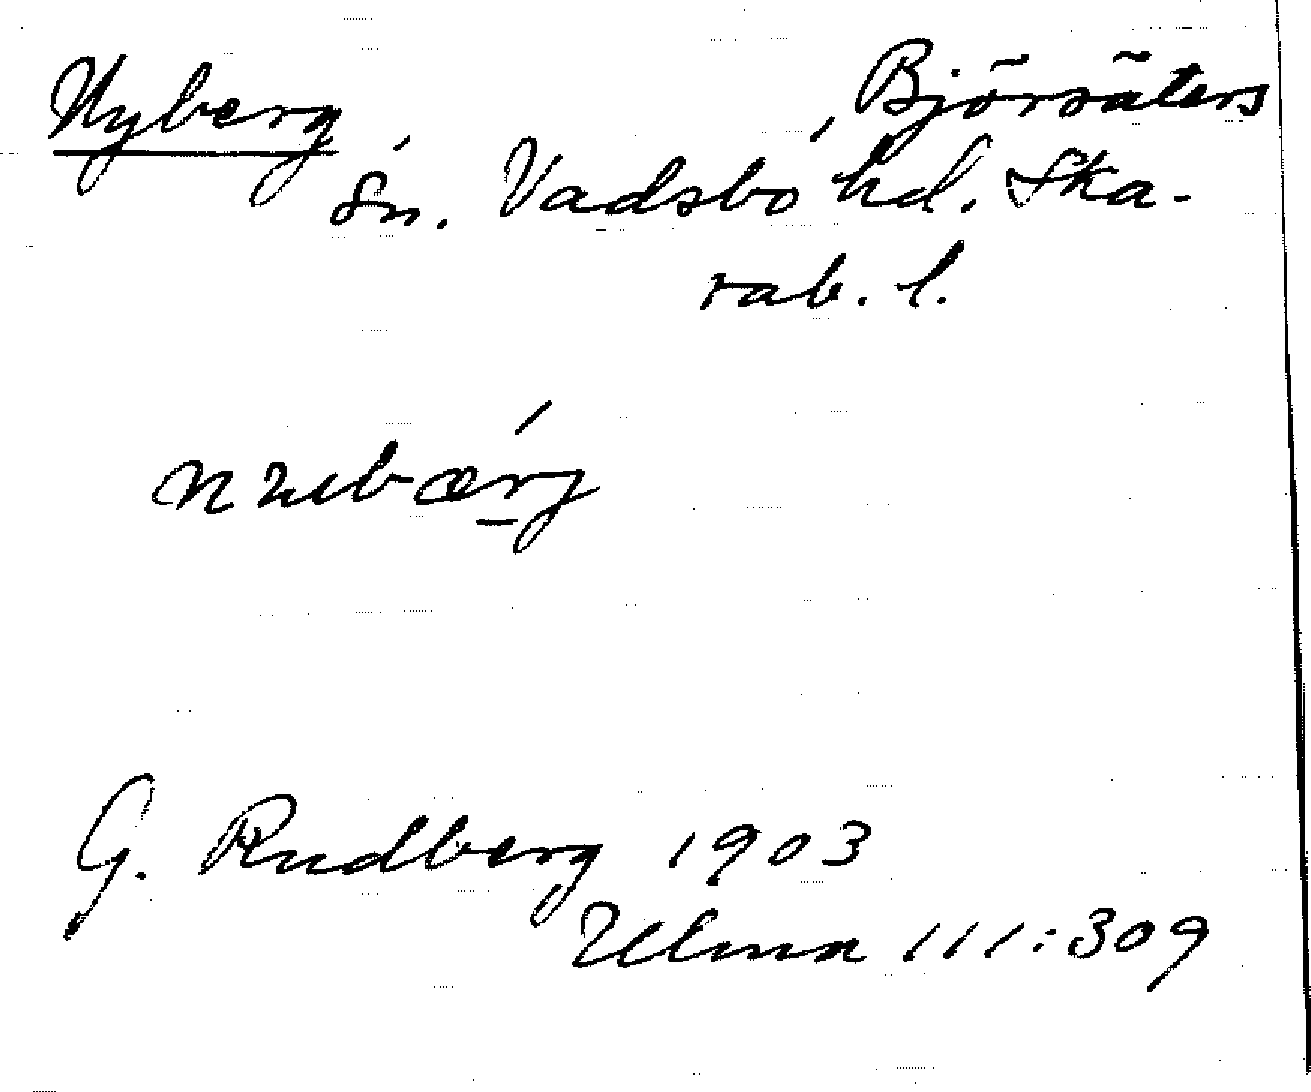 Nyberg, Björsäters
sn. Vadsbo hd. Ska-
rab. l.
G. Rudberg 1903
Ulma 111:309